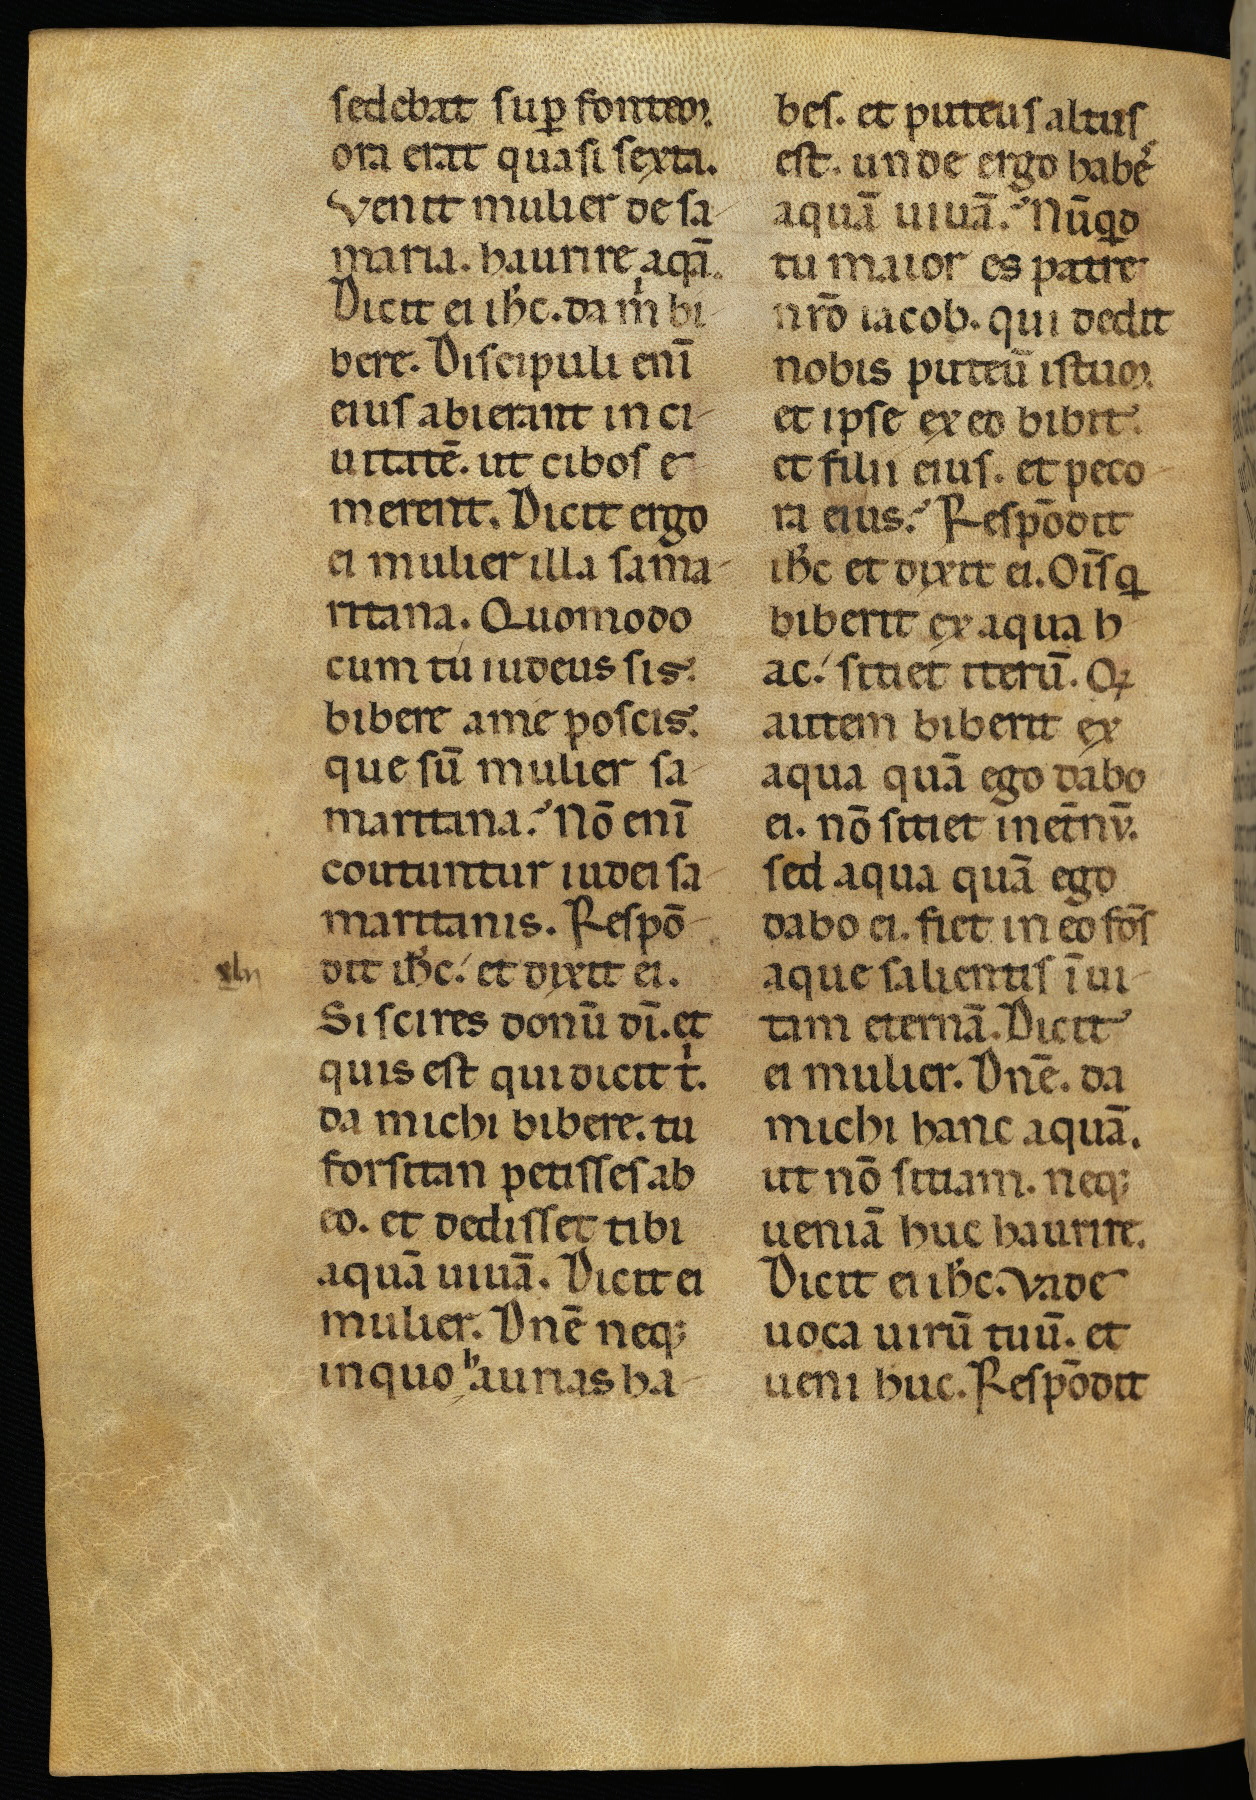 sedebat sup̄ fontem.
ora erat quasi sexta.
Venit mulier de sa-
maria. haurire aqā.
Dicit ei ih̄c. da m̍ bi-
bere. Discipuli enī
eius abierant in ci-
uitatē. ut cibos e-
merent. Dicit ergo
ei mulier illa sama-
ritana. Quomodo
cum tu iudeus sis.
bibere a me poscis.
que sū mulier sa-
maritana. Nō enī
coutuntur iudei sa-
maritanis. Respō-
dit ih̄c. et dixit ei.
Si scires donū dī. et
quis est qui dicit t̍.
da michi bibere. tu
forsitan petisses ab
eo. et dedisset tibi
aquā uiuā. Dicit ei
mulier. Dnē neq;
in quo haurias ha-
bes. et puteus altus
est. unde ergo habes
aquā uiuā. Nūqd
tu maior es patre
nrō iacob. qui dedit
nobis puteū istum.
et ipse ex eo bibit.
et filii eius. et peco-
ra eius. Respōdit
ih̄c et dixit ei. Oīs q
biberit ex aqua h
ac. sitiet iterū. Qi
autem biberit ex
aqua quā ego dabo
ei. nō sitiet in et̄nū.
sed aqua quā ego
dabo ei. fiet in eo fōs
aque salientis ī ui-
tam eternā. Dicit
ei mulier. Dnē. da
michi hanc aquā.
ut nō sitiam. neq;
ueniā huc haurire.
Dicit ei ih̄c. Vade
uoca uirū tuū. et
ueni huc. Respōdit